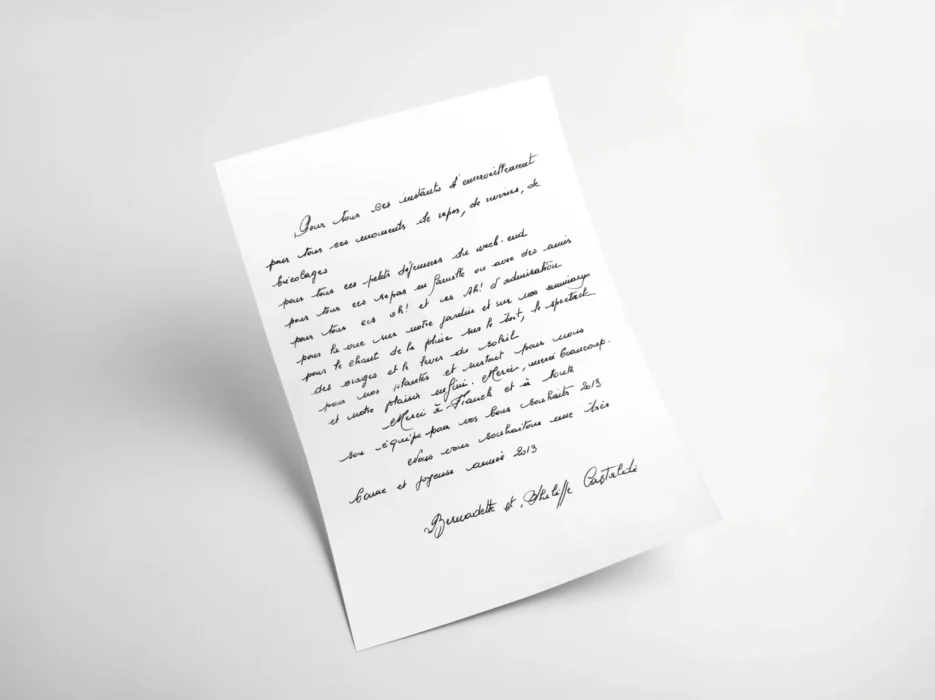 Pour tous ces instants d'émerveillement
pour tous ces moments de repos, de
bricolages
pour tous ces petits déjeuners du week-end
pour tous ces repas en famille ou avec des amis
pour tous ces oh! et ces Ah! d'admiration
pour la vue sur notre jardin et sur nos
pour le chant de la pluie sur le toit, le spectacle
des orages et le lever du soleil
pour nos plantes et surtout pour nous
et notre plaisir infini. Merci, merci beaucoup.
Merci à Franck et à toute
son équipe pour vos bons souhaits 2013
Nous vous souhaitons une très
bonne et joyeuse année 2013
Bernadette et Philippe Castaldi